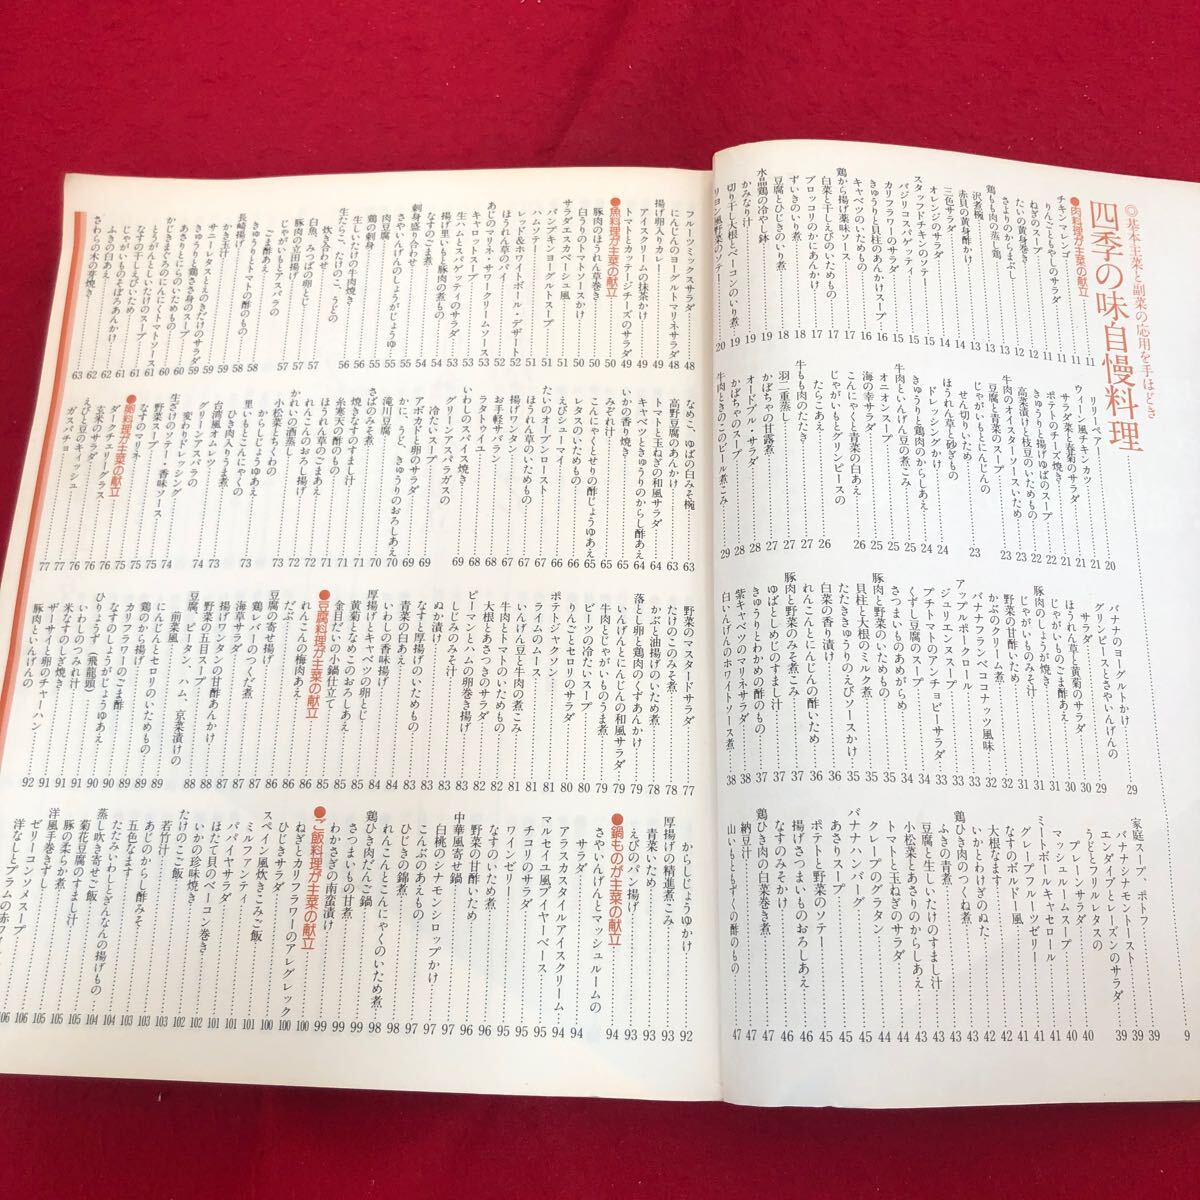 ◎基本主菜と副菜の応用を手ほどき
四季の味自慢料理……9
●肉料理が主菜の献立
チキンマレンゴ……11
りんごもやしのサラダ……11
ねぎのスープ……11
たいの黄身巻き……12
鶏もも肉の蒸し鶏……13
沢煮椀……13
赤貝の黄身酢かけ……13
三色サラダ……14
オレンジのサラダ……14
スタッフドチキンのソテー……15
バジリコスパゲッティ……15
カリフラワーのサラダ……15
きゅうりと貝柱のあんかけスープ……16
キャベツのいためもの……16
鶏から揚げ薬味ソース……17
白菜と干しえびのいためもの……17
ブロッコリのかにあんかけ……17
ずいきのいり煮……18
豆腐とひじきのいり煮……18
水晶鶏の冷やし鉢……19
かみなり汁……19
切り干し大根とベーコンのいり煮……19
リヨン風野菜のソテー……20
リリーベアー……20
ウィーン風チキンカツ……21
サラダ菜と春菊のサラダ……21
ポテトのチーズ焼き……21
きゅうりと揚げゆばのスープ……22
高菜漬けと枝豆のいためもの……22
牛肉のオイスターソースいため……23
豆腐と青菜のスープ……23
じゃがいもとにんじんの
せん切りいため……23
ほうれん草と砂ぎもの
ドレシングかけ……24
きゅうりと鶏肉のからしあえ……24
オニオンスープ……25
牛肉といんげん豆の煮こみ……25
海の幸サラダ……25
こんにゃくと青菜の白あえ……26
じゃがいもとグリンピースの
たらこあえ……26
牛もも肉のたたき……27
羽二重蒸し……27
かぼちゃの甘露煮……27
オードブル・サラダ……28
かぼちゃのスープ……28
牛肉ときのこのビール煮こみ……29
バナナのヨーグルトかけ……29
グリンピースとさやいんげんの
サラダ……29
ほうれん草と黄菊のサラダ……30
じゃがいものごま酢あえ……30
豚肉のしょうが焼き……31
じゃがいものみそ汁……31
野菜の甘酢いため……31
かぶのクリーム煮……32
バナナフランベココナッツ風味……32
アップルポークロール……33
ジュリエンヌスープ……33
プチトマトのアンチョビーサラダ……33
くずし豆腐のスープ……34
さつまいものあめがらめ……34
豚肉と野菜のいためもの……35
貝柱と大根のミルク煮……35
たたききゅうりのえびソースかけ……35
白菜の香り漬け……36
れんこんとにんじんの酢いため……36
豚肉と野菜のみそ煮こみ……36
ゆばとしめじのすまし汁……37
きゅうりとわかめの酢のもの……37
紫キャベツのマリネサラダ……37
白いんげんのホワイトソース煮……38
家庭スープ、ポトフ……39
バナナシナモントースト……39
エンダイブとレーズンのサラダ……39
うどとフリルレタスの
プレーンサラダ……40
マッシュルームスープ……40
ミートボールキャセロール……41
グレープフルーツゼリー……41
なすのボルドー風……41
大根なます……42
いかとわけぎのぬた……42
鶏ひき肉のつくね煮……42
ふきの青煮……43
豆腐と生しいたけのすまし汁……43
小松菜とあさりのからしあえ……43
トマトと玉ねぎのサラダ……44
クレープのグラタン……44
バナナハンバーグ……45
あさりスープ……45
ポテトと野菜のソテー……45
揚げさつまいものおろしあえ……46
なすのみそかけ……46
鶏ひき肉の白菜巻き煮……47
納豆汁……47
山いもともずくの酢のもの……47
フルーツミックスサラダ……48
にんじんのヨーグルトマリネサラダ……48
揚げ卵入りカレー……49
アイスクリームの抹茶かけ……49
トマトとカッテージチーズのサラダ……49
●魚料理が主菜の献立
豚肉のほうれん草巻き……50
白うりのトマトソースかけ……50
サラダエスカベーシュ風……51
パンプキンヨーグルトスープ……51
ハムソテー……51
ほうれん草のパイ……52
レッド&ホワイトボール・デザート……52
あじのマリネ・サワークリームソース……53
キャロットスープ……53
生ハムとスパゲッティのサラダ……53
揚げ里いもと豚肉の煮もの……54
なすのごま煮……54
刺身盛り合わせ……54
さやいんげんのしょうがじょうゆ……55
肉豆腐……55
鶏の刺身……55
生しいたけの牛肉焼き……56
生たらこ、たけのこ、うどの
炊き合わせ……56
白魚、みつばの卵とじ……57
豚肉の立田揚げ……57
じゃがいもとアスパラの
ごま酢あえ……57
きゅうりとトマトの酢のもの……58
長崎揚げ……58
かき玉汁……58
サニーレタスとえのきだけのサラダ……59
きゅうりと鶏ささ身のスープ……59
あさりとにらのいためもの……60
かじきまぐろのにんにくトマトソース……60
とうがんとしいたけのスープ……60
なすの干しえびいため……61
じゃがいものそぼろあんかけ……61
ふきの白あえ……62
さわらの木の芽焼き……63
なめこ、ゆばの白みそ椀……63
高野豆腐のあんかけ……63
トマトと玉ねぎの和風サラダ……64
キャベツときゅうりのからし酢あえ……64
いかの香り焼き……64
みぞれ汁……65
こんにゃくとせりの酢じょうゆあえ……65
レタスのいためもの……65
えびシューマイ……66
たいのオーブンロースト……66
ほうれん草のいためもの……67
揚げワンタン……67
お手軽サバラン……67
ラタトゥイユ……68
いわしのスパイス焼き……68
グリーンアスパラガスの
冷たいスープ……69
アボカドと卵のサラダ……69
かに、うど、きゅうりのおろしあえ……69
滝川豆腐……70
さばのみそ煮……70
焼きなすのすまし汁……71
糸寒天の酢のもの……71
ほうれん草のごまあえ……71
れんこんのおろし揚げ……72
かれいの酒蒸し……72
小松菜とちくわの
からしじょうゆあえ……73
里いもとこんにゃくの
ひき肉入りうま煮……73
台湾風オムレツ……73
グリーンアスパラの
変わりドレッシング……74
生ざけのソテー・香味ソース……74
野菜スープ……74
なすのマリネ……75
●卵料理が主菜の献立
ダークチェリーグラス……75
玄米のサラダ……76
えびと豆のキィッシュ……76
ガスパチョ……77
野菜のマスタードサラダ……77
たけのこのみそ煮……78
かぶと油揚げのいため煮……78
落とし卵と鶏肉のくずあんかけ……79
いんげんとにんじんの和風サラダ……79
牛肉とじゃがいものうま煮……79
ビーツの冷たいスープ……80
りんごとセロリのサラダ……80
ポテトジャクソン……80
ライムのムース……81
いんげん豆と牛肉の煮こみ……81
牛肉とトマトのいためもの……81
大根とあさつきのサラダ……82
ピーマンとハムの卵巻き揚げ……82
しじみのみそ汁……82
ぬか漬け……83
なすと厚揚げのいためもの……83
青菜の白あえ……83
いわしの香味揚げ……84
厚揚げとキャベツの卵とじ……84
黄菊となめこのおろしあえ……85
金目だいの小鍋仕立て……85
●豆腐料理が主菜の献立
れんこんの梅肉あえ……85
だんぶ……86
豆腐の寄せ揚げ……86
鶏レバーのつくだ煮……86
海草サラダ……87
揚げワンタンの甘酢あんかけ……87
野菜の五目スープ……88
豆腐、ピータン、ハム、京菜漬けの
前菜風……88
にんじんとセロリのいためもの……89
鶏のから揚げ……89
カリフラワーのごま酢……89
なすのしょうがじょうゆあえ……90
ひりょうず(飛龍頭)……90
いわしのつみれ汁……91
米なすのしぎ焼き……91
ザーサイと卵のチャーハン……91
豚肉といんげんの
からしじょうゆかけ……92
厚揚げの精進煮……93
青菜いため……93
えびのパン揚げ……93
●鍋ものが主菜の献立
さやいんげんとマッシュルームの
サラダ……94
アラスカスタイルアイスクリーム……94
マルセイユ風ブイヤーベース……94
チコリのサラダ……95
ワインゼリー……95
なすのいため煮……95
野菜の甘酢いため……96
中華風寄せ鍋……96
白桃のシナモンシロップかけ……96
こんぶのあえもの……97
ひじきの錦煮……97
れんこんとこんにゃくのいため煮……98
鶏ひき肉だんご鍋……98
さつまいもの甘煮……98
わかさぎの南蛮漬け……99
●ご飯料理が主菜の献立
ねぎとカリフラワーのアレグレック……99
ひじきサラダ……100
スペイン風炊きこみご飯……100
ミルファンティ……101
パパイヤサラダ……101
ほたて貝のベーコン巻き……101
いかの珍味焼き……102
たけのこご飯……102
若竹汁……102
あじのからし酢みそ……103
五色なます……103
ただみいわしとぎんなんの揚げもの……104
蒸し吹き寄せご飯……104
菊花豆腐のすまし汁……105
豚の柔らか煮……105
洋風手巻きずし……105
ゼリーコンソメスープ……106
洋なしとプラムの赤ワイ